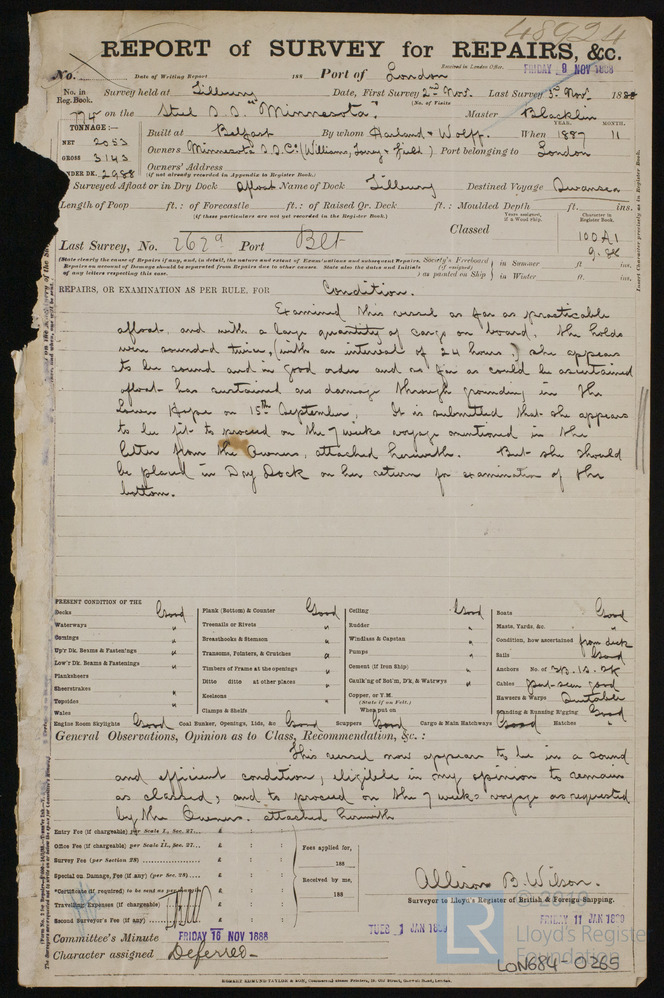 48924
REPORT of SURVEY for REPAIRS, &c.
No. Date of Writing Report 188 Port of London Received in London Office. FRIDAY 9 NOV 1888
No. in Reg. Book. Survey held at Tilbury Date, First Survey 2nd Nov. Last Survey 5th Nov. 1888
(No. of Visits
774 on the Steel S.S. "Minnesota." Master Blacklin
TONNAGE:— YEAR. MONTH.
NET 2053 Built at Belfast By whom Harland & Wolff. When 1887 11
GROSS 3143 Owners Minnesota S.S. Co. (Williams, Torrey & Field) Port belonging to London
UNDER DK. 2988 Owners' Address
(If not already recorded in Appendix to Register Book.)
Surveyed Afloat or in Dry Dock afloat Name of Dock Tilbury Destined Voyage Swansea
Length of Poop ft.: of Forecastle ft.: of Raised Qr. Deck ft.: Moulded Depth ft. ins.
(If these particulars are not yet recorded in the Register Book.)
Years assigned, if a Wood ship. Character in Register Book.
Last Survey, No. 2629 Port Belt Classed 100A1
9.88
(State clearly the cause of Repairs if any, and, in detail, the nature and extent of Examinations and subsequent Repairs.
Repairs on account of Damage should be separated from Repairs due to other causes. State also the dates and Initials
of any letters respecting this case.
Society's Freeboard (if assigned) as painted on Ship
in Summer ft ins.
in Winter ft. ins.
REPAIRS, OR EXAMINATION AS PER RULE, FOR Condition.
Examined this vessel as far as practicable
afloat, and with a large quantity of cargo on board. The holds
were sounded twice, (with an interval of 24 hours.) she appears
to be sound and in good order and as far as could be ascertained
afloat has sustained no damage through grounding in the
Lower Hope on 15th September. It is submitted that she appears
to be fit to proceed on the 7 weeks voyage mentioned in the
letter from the Owners, attached herewith. But she should
be placed in Dry Dock on her return for examination of the
bottom.
PRESENT CONDITION OF THE
Decks Good
Waterways "
Comings "
Up'r Dk. Beams & Fastenings "
Low'r Dk. Beams & Fastenings "
Planksheers
Sheerstrakes "
Topsides "
Wales
Plank (Bottom) & Counter Good
Treenails or Rivets "
Breasthooks & Stemson "
Transoms, Pointers, & Crutches "
Timbers of Frame at the openings "
Ditto ditto at other places "
Keelsons "
Clamps & Shelfs
Ceiling Good
Rudder "
Windlass & Capstan "
Pumps "
Cement (if Iron Ship) "
Caulk'ng of Bot'm, D'k, & Watrwys "
Copper, or Y.M.
(State if on Felt.)
When put on
Boats Good
Masts, Yards, &c. "
Condition, how ascertained from deck
Sails Good
Anchors No. of 3B. 1S. 2K
Cables part seen good
Hawsers & Warps Suitable
Standing & Running Rigging Good
Engine Room Skylights Good Coal Bunker, Openings, Lids, &c Good Scuppers Good Cargo & Main Hatchways Good Hatches "
General Observations, Opinion as to Class, Recommendation, &c.:
This vessel now appears to be in a sound
and efficient condition, eligible in my opinion to remain
as classed, and to proceed on the 7 weeks voyage as requested
by the Owners. attached herewith
Entry Fee (if chargeable) per Scale I., Sec. 27... £ : :
Office Fee (if chargeable) per Scale II., Sec. 27... £ : :
Survey Fee (per Section 28) £ : :
Special on Damage, Fee (if any) (per Sec. 28) £ : :
*Certificate (if required) to be sent as per margin £ : :
Travelling Expenses (if chargeable) £ : :
Second Surveyor's Fee (if any) £ : :
Fees applied for,
188
Received by me,
188
Allison B. Wilson.
Surveyor to Lloyd's Register of British & Foreign Shipping.
Committee's Minute FRIDAY 16 NOV 1888 TUES 1 JAN 1889 FRIDAY 11 JAN 1889
Character assigned Deferred
© 2019
LR
Lloyd's Register
Foundation
LON684-0265